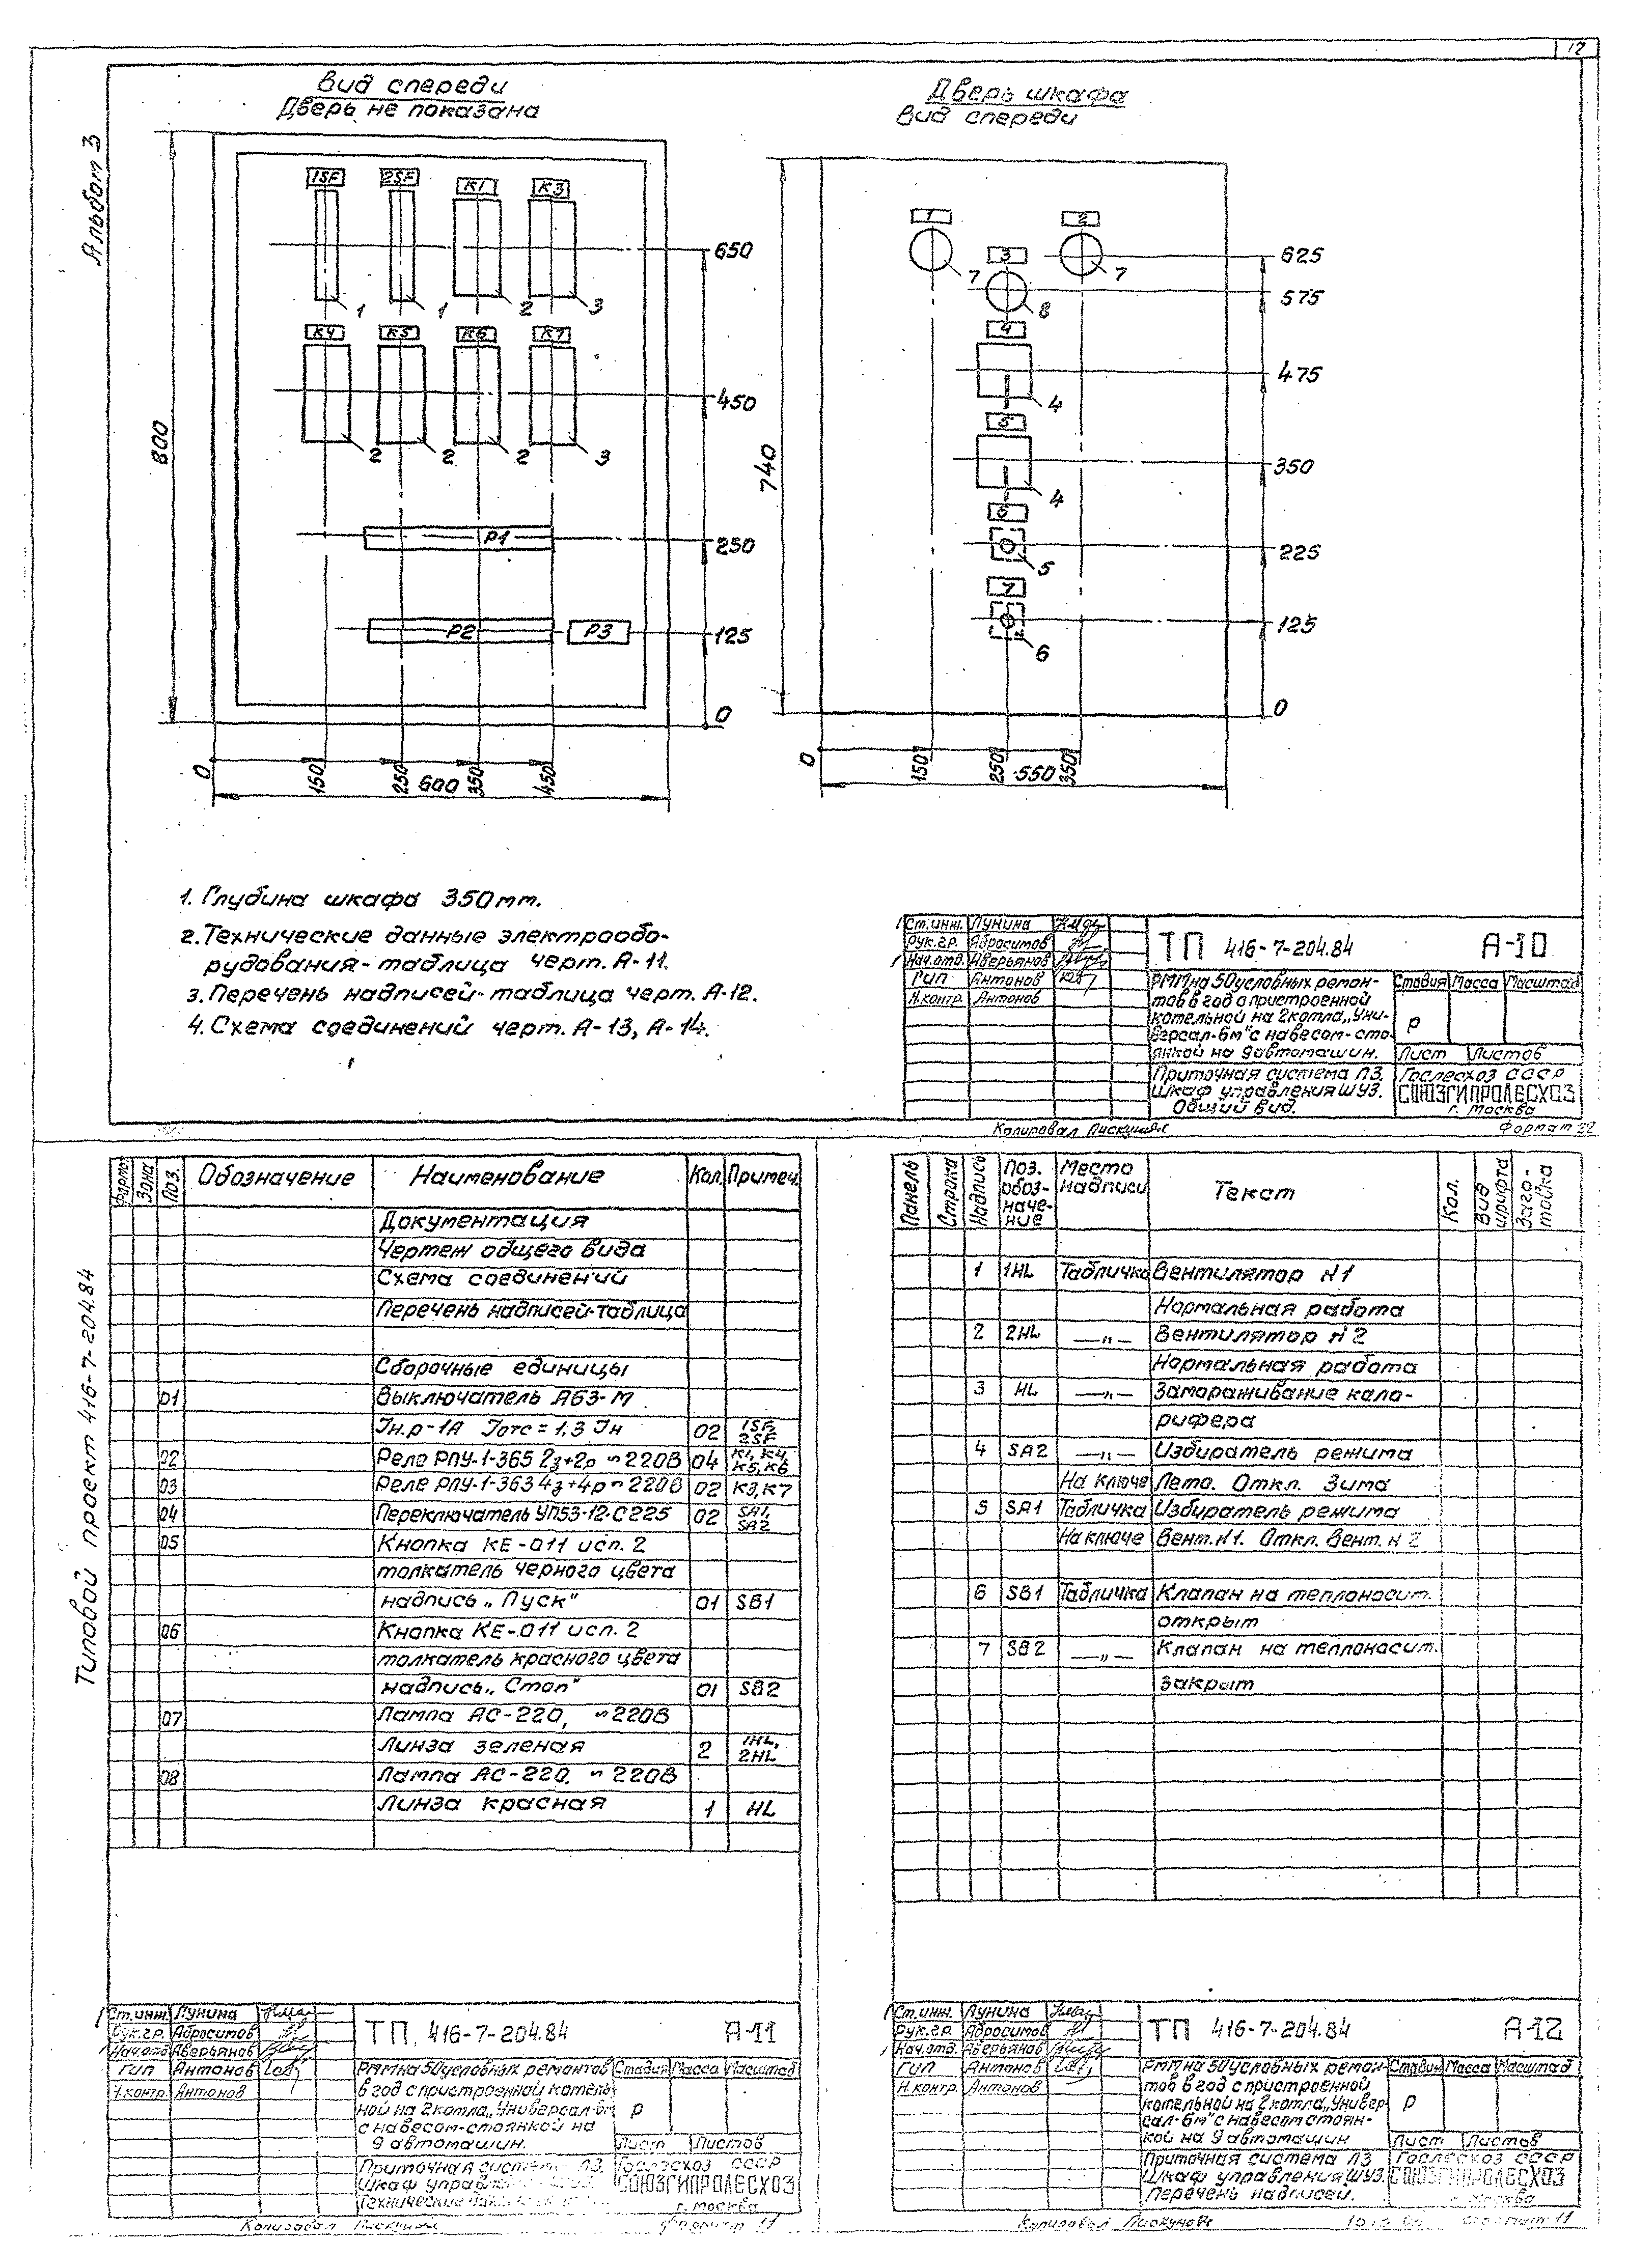 12
Альбом 3
Вид спереди
Дверь не показана
Дверь шкафа
Вид спереди
1SF 2SF К1 К3
650
1 1 2 3
К4 К5 К6 К7
450
2 2 2 3
800
Р1
250
Р2 Р3
125
0
0 150 250 600 350 450
1 2
625
7 3 7
575
8
4
475
4
5
350
4
740
6
225
5
7
125
6
0
0 150 250 550 350
1. Глубина шкафа 350мм.
2. Технические данные электрообо-
рудования-таблица черт. А-11.
3. Перечень надписей-таблица черт. А-12.
4. Схема соединений черт. А-13, А-14.
Ст.инж. Лунина
Рук.гр. Абросимов
Нач.отд. Аверьянов
ГИП Антонов
Н.контр. Антонов
ТП 416-7-204.84 А-10
РММ на 50 условных ремон-
тов в год с пристроенной
котельной на 2 котла „Уни-
версал-6м" с навесом-сто-
янкой на 9 автомашин.
Стадия Масса Масштаб
Р
Лист Листов
Приточная система П3.
Шкаф управления ШУ3.
Общий вид.
Гослесхоз СССР
СОЮЗГИПРОЛЕСХОЗ
г. Москва
Копировал Пискунов
Формат 22
Типовой проект 416-7-204.84
Формат Зона Поз. Обозначение Наименование Кол. Примеч.
Документация
Чертеж общего вида
Схема соединений
Перечень надписей-таблица
Сборочные единицы
01 Выключатель А63-М
Iн.р-1А Iотс = 1,3 Iн 02 1SF 2SF
02 Реле РПУ-1-365 2з+2р ~220В 04 К1, К4, К5, К6
03 Реле РПУ-1-363 4з+4р ~220В 02 К3, К7
04 Переключатель УП53-12-С225 02 SA1, SA2
05 Кнопка КЕ-011 исп. 2
толкатель черного цвета
надпись „Пуск" 01 SB1
06 Кнопка КЕ-011 исп. 2
толкатель красного цвета
надпись „Стоп" 01 SB2
07 Лампа АС-220, ~220В
Линза зеленая 2 1HL, 2HL
08 Лампа АС-220. ~220В
Линза красная 1 HL
Ст.инж. Лунина
Рук.гр. Абросимов
Нач.отд. Аверьянов
ГИП Антонов
Н.контр. Антонов
ТП. 416-7-204.84 А-11
РММ на 50 условных ремонтов
в год с пристроенной котель-
ной на 2 котла „Универсал-6м"
с навесом-стоянкой на
9 автомашин.
Стадия Масса Масштаб
Р
Лист Листов
Приточная система П3.
Шкаф управления
Технические
Гослесхоз СССР
СОЮЗГИПРОЛЕСХОЗ
г. Москва
Копировал Пискунов
Формат 11
Панель Строка Надпись Поз. обоз-наче-ние Место надписи Текст Кол. Вид шрифта Заго-товка
1 1HL Табличка Вентилятор N1
Нормальная работа
2 2HL —„— Вентилятор N2
Нормальная работа
3 HL —„— Замораживание кало-
рифера
4 SA2 —„— Избиратель режима
На ключе Лето. Откл. Зима
5 SA1 Табличка Избиратель режима
На ключе Вент. N1. Откл. Вент. N2
6 SB1 Табличка Клапан на теплоносит.
открыт
7 SB2 —„— Клапан на теплоносит.
закрыт
Ст.инж. Лунина
Рук.гр. Абросимов
Нач.отд. Аверьянов
ГИП Антонов
Н.контр. Антонов
ТП 416-7-204.84 А-12
РММ на 50 условных ремон-
тов в год с пристроенной
котельной на 2 котла „Универ-
сал-6м" с навесом стоян-
кой на 9 автомашин
Стадия Масса Масштаб
Р
Лист Листов
Приточная система П3
Шкаф управления ШУ3.
Перечень надписей.
Гослесхоз СССР
СОЮЗГИПРОЛЕСХОЗ
г. Москва
Копировал Пискунов
Формат 11